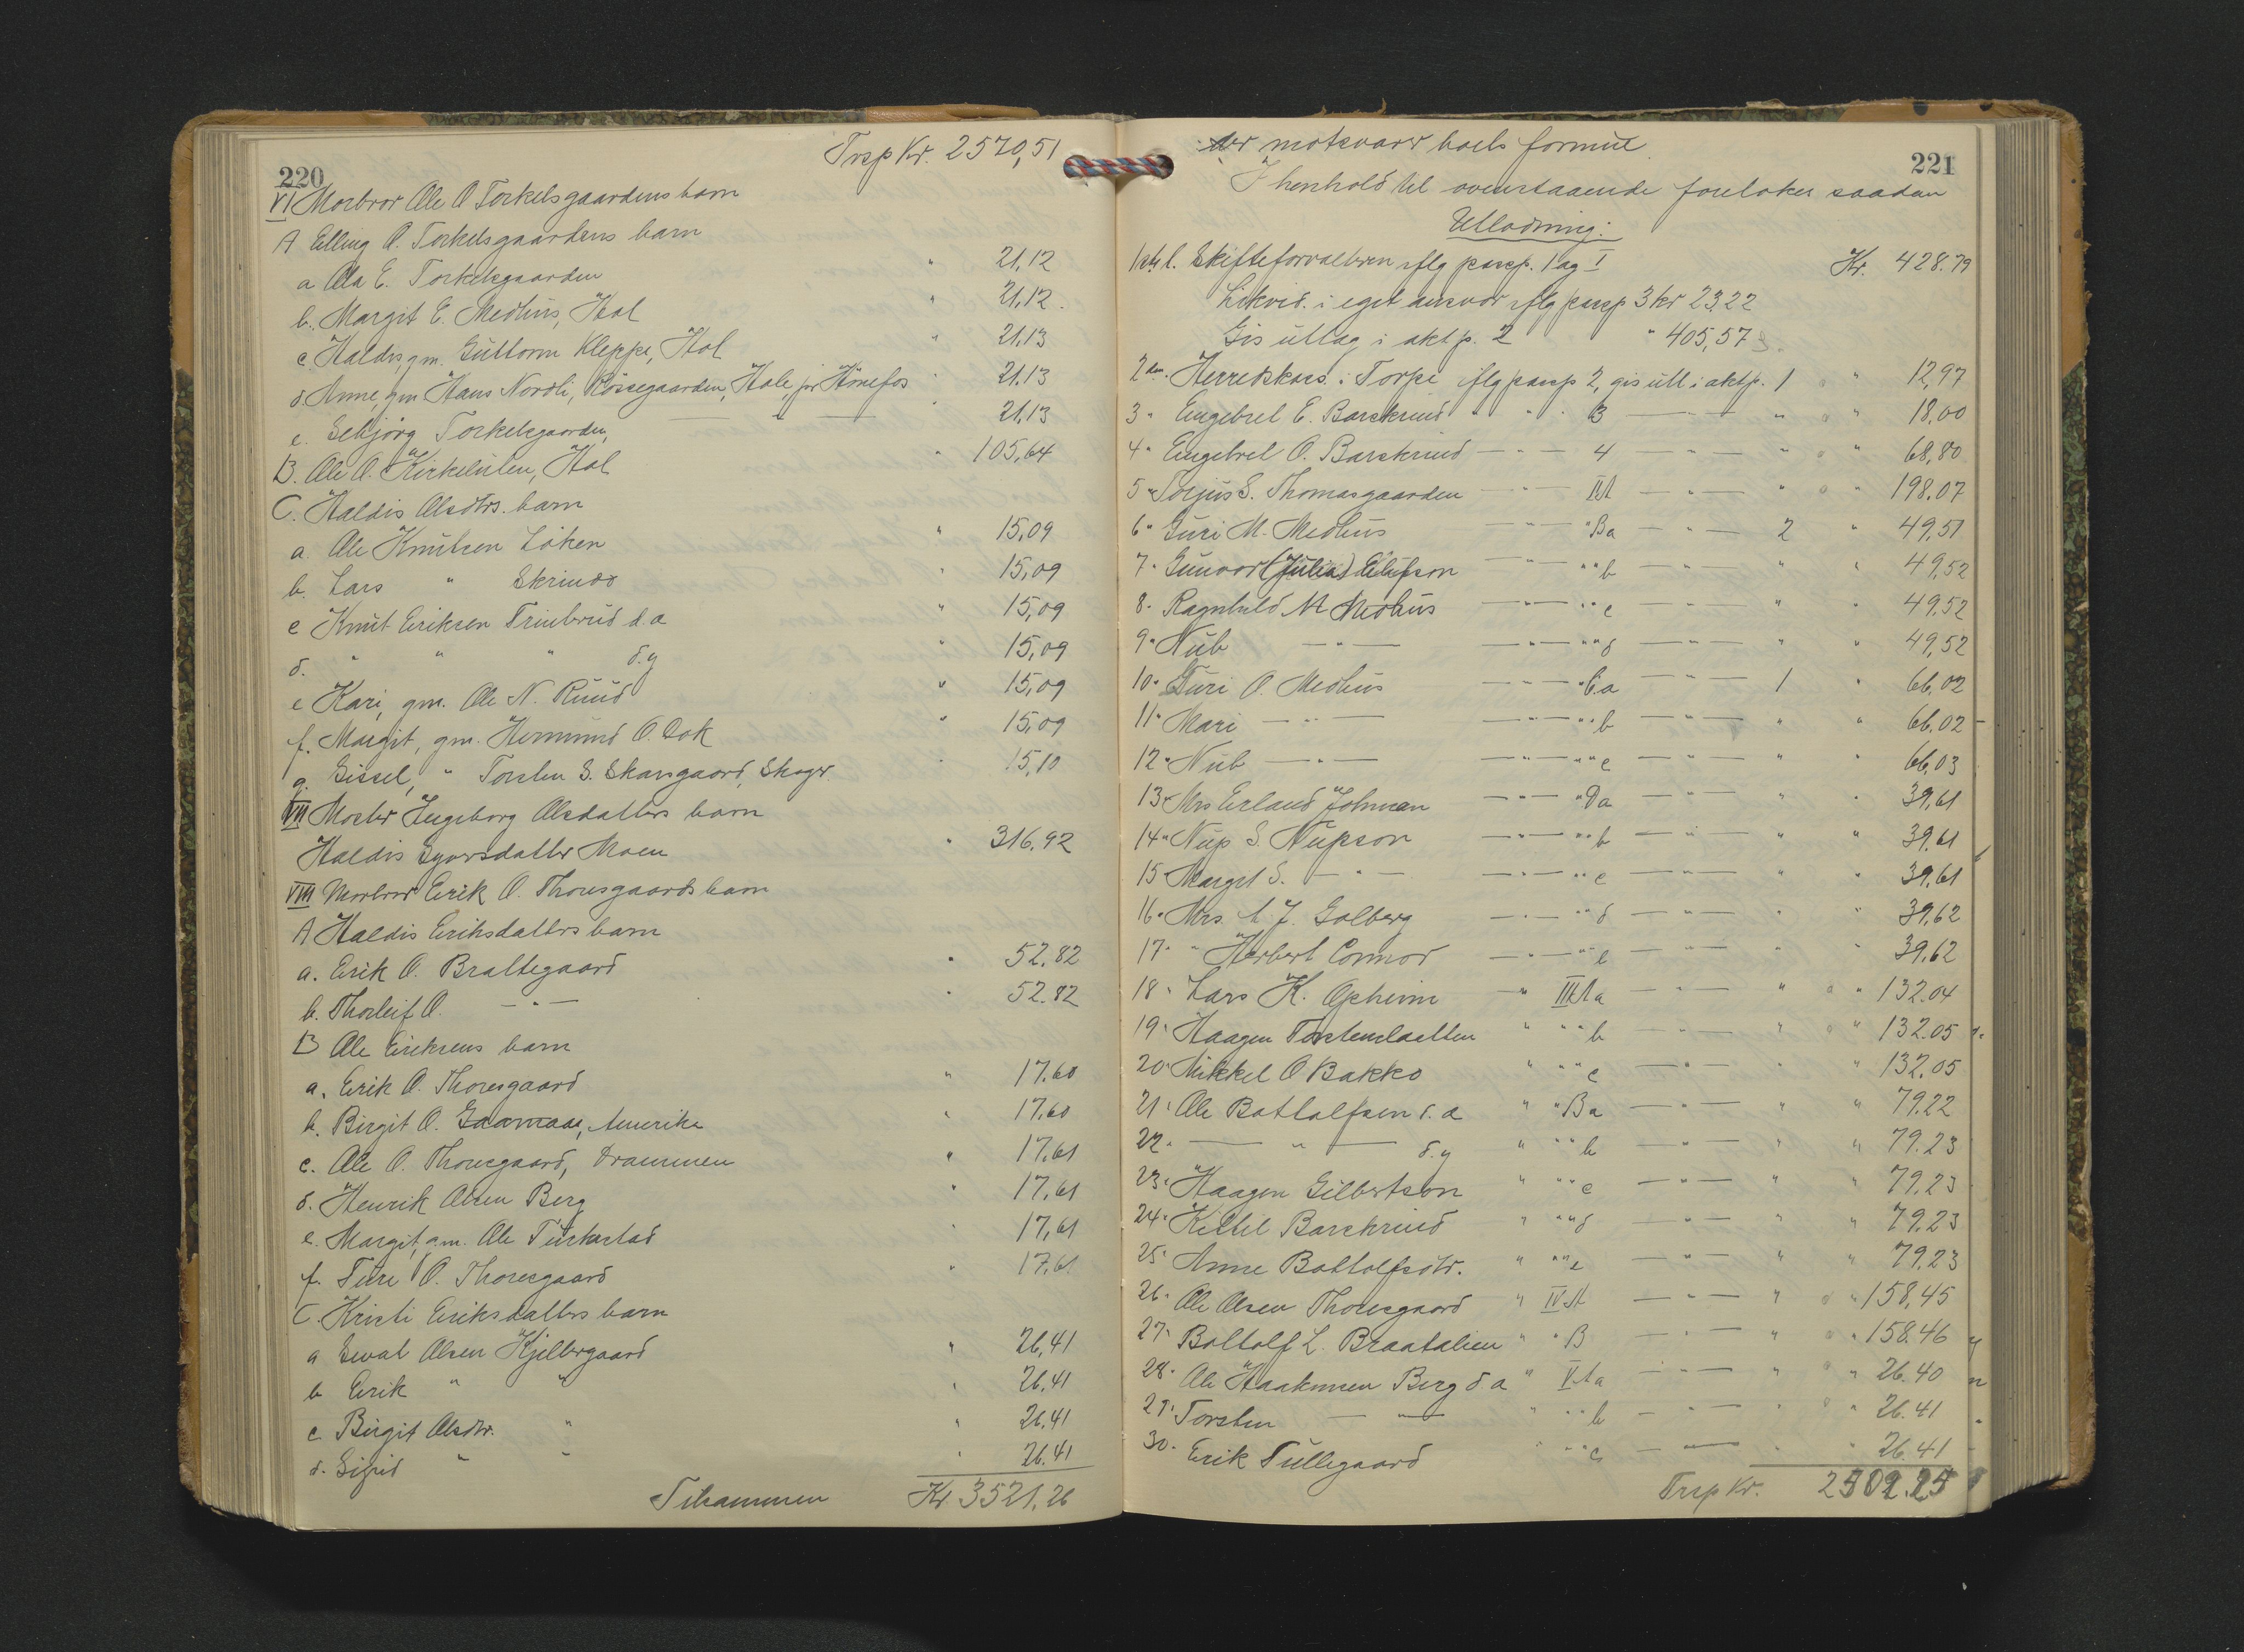 220
Trsp Kr. 2570,51
VI Morbror Ole O Torkelsgaardens barn
A Elling O. Torkelsgaardens barn
a Ola E. Torkelsgaarden " 21,12
b. Margit E. Medhus, Hol " 21,12.
c Haldis, gm. Guttorm Kleppe, Hol " 21,13
d. Anne, gm Hans Nordli, Rossegaarden, Hole, pr Hønefos " 21,13
e. Sebjørg Torkelsgaarden, 21,13
B. Ole O. Kirkelien, Hol " 105,64
C. Haldis Olsdtrs. barn
a. Ole Knutsen Løken " 15,09
b. Lars " Skrindo " 15,09
c Knut Eriksen Trintrud d.e " 15,09
d. " " " d.y " 15,09
e Kari, gm. Ole N. Ruud " 15,09
f. Margit, gm. Hermund O. Dok " 15,09
g. Sissel, " Torsten S. Skarsgaard, Skoger. " 15,10
VII Moster Ingeborg Olsdatters barn
Haldis Syversdatter Moen " 316,92
VIII Morbror Erik O. Thoresgaards barn
A Haldis Eriksdatters barn
a. Erik O. Braltegaard " 52.82
b. Thorleif O. — " — " 52.82
B Ole Eriksens barn
a. Erik O. Thoresgaard " 17.60
b. Birgit O. Gaamaas, Amerika " 17.60
c. Ole O. Thoresgaard, Drammen " 17,61
d. Henrik Olsen Berg " 17,61
e. Margit, gm. Ole " 17,61
f. Ture O. Thoresgaard " 17,61
C. Kristi Eriksdatters barn
a Seval Olsen Kjeldergaard " 26,41
b Erik " " " 26.41
c Birgit Olsdtr. " " 26.41
d. Sigrid " " " 26.41
Tilsammen Kr 3521,26
221
der motsvarer boets formue.
I henhold til ovenstaaende foretokes saadan
Utlodning:
1ste l. Skifteforvalteren iflg passp. 1 og I Kr. 428.79
Likvid. i eget ansvar iflg passp 3 kr 23,22
Gis utlæg i akt p. 2 " 405,57
2den. Herredskas. i Torpe iflg passp 2, gis utl i akt p. 1 " 12,97
3 " Engebret E. Barskrind " " " 3 — " " 18,00
4 " Engebret O. Barskrind — " — 4 — " — " " 68,80
5 " Torjus S. Thomasgaarden — " — IIA — " — " " 198.07
6 " Guri M. Medhus — " — " Ba — " — 2 " 49,51
7 " Gunvor (Julia) Ellefson — " — " " b — " — " " 49,52
8 " Ragnhild M Medhus — " — " " c — " — " " 49,52
9 " Nub — " — — " — " " d — " — " " 49,52
10 " Guri O. Medhus — " — " C.a — " — 1 " 66,02
11 " Mari — " — — " — " " b — " — " " 66,02
12 " Nub — " — — " — " " c — " — " " 66,03
13 " Mrs Erland Johnson — " — " Da — " — " " 39,61
14 " Nup S Nupson — " — " " b — " — " " 39,61
15 " Margit S. — " — — " — " " c — " — " " 39,61
16 " Mrs. A. J. Golberg — " — " " d — " — " " 39,62
17 " " Herbert Connor — " — " " e — " — " " 39,62
18 " Lars K. Opheim — " IIIAa — " — " " 132.04
19 " Haagen Torstenslaatten " " " b — " — " " 132.05
20 " Mikkel O Bakko " " " c — " — " " 132,05
21 " Ole Botlolfsen d.e " " Ba — " — " " 79.22
22 " — " — d.y " " " b — " — " " 79.23
23 " Haagen Gilbertson " " " c — " — " " 79,23
24 " Kittil Barskrind " " " d — " — " " 79,23
25 " Anne Bottolfsdtr. " " " e — " — " " 79,23
26 " Ole Olsen Thoresgaard " IVA — " — " " 158,45
27 " Boltolf L. Braatalien " " B — " — " " 158.46
28 " Ole Haakonsen Berg d.e " VAa — " — " " 26.40
29 " Torsten — " — " " " b — " — " " 26.41
30 " Erik Tullegaard " " " c — " — " " 26.41
Trsp Kr. 2502.25